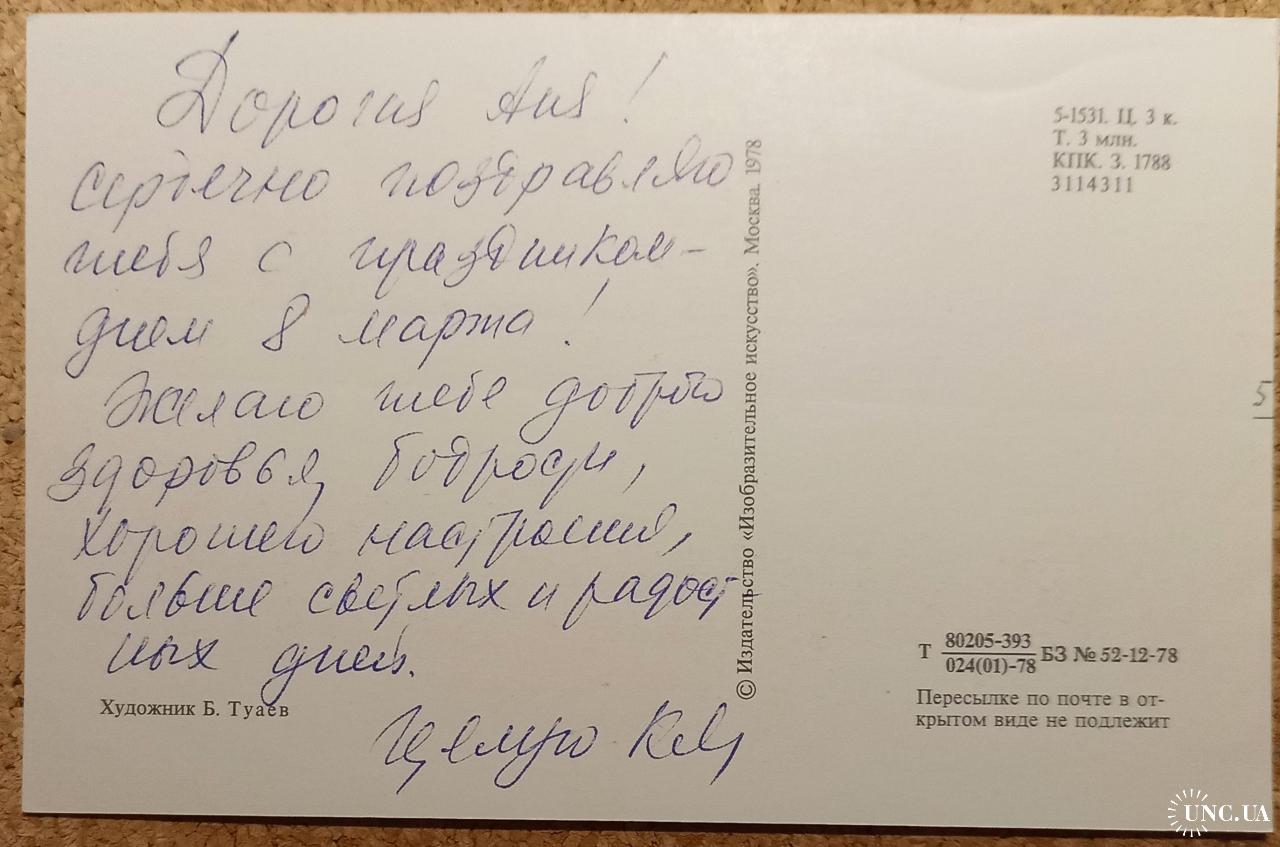 Дорогая Аня!
сердечно поздравляю
тебя с праздником-
днем 8 марта!
Желаю тебе доброго
здоровья, бодрости,
хорошего настроения,
больше светлых и радост
ных дней.
Целую
Художник Б. Туаев
© Издательство «Изобразительное искусство». Москва. 1978
5-1531. Ц. 3 к.
Т. 3 млн.
КПК. З. 1788
3114311
5
Т 80205-393 БЗ № 52-12-78
024(01)-78
Пересылке по почте в от-
крытом виде не подлежит
UNC.UA